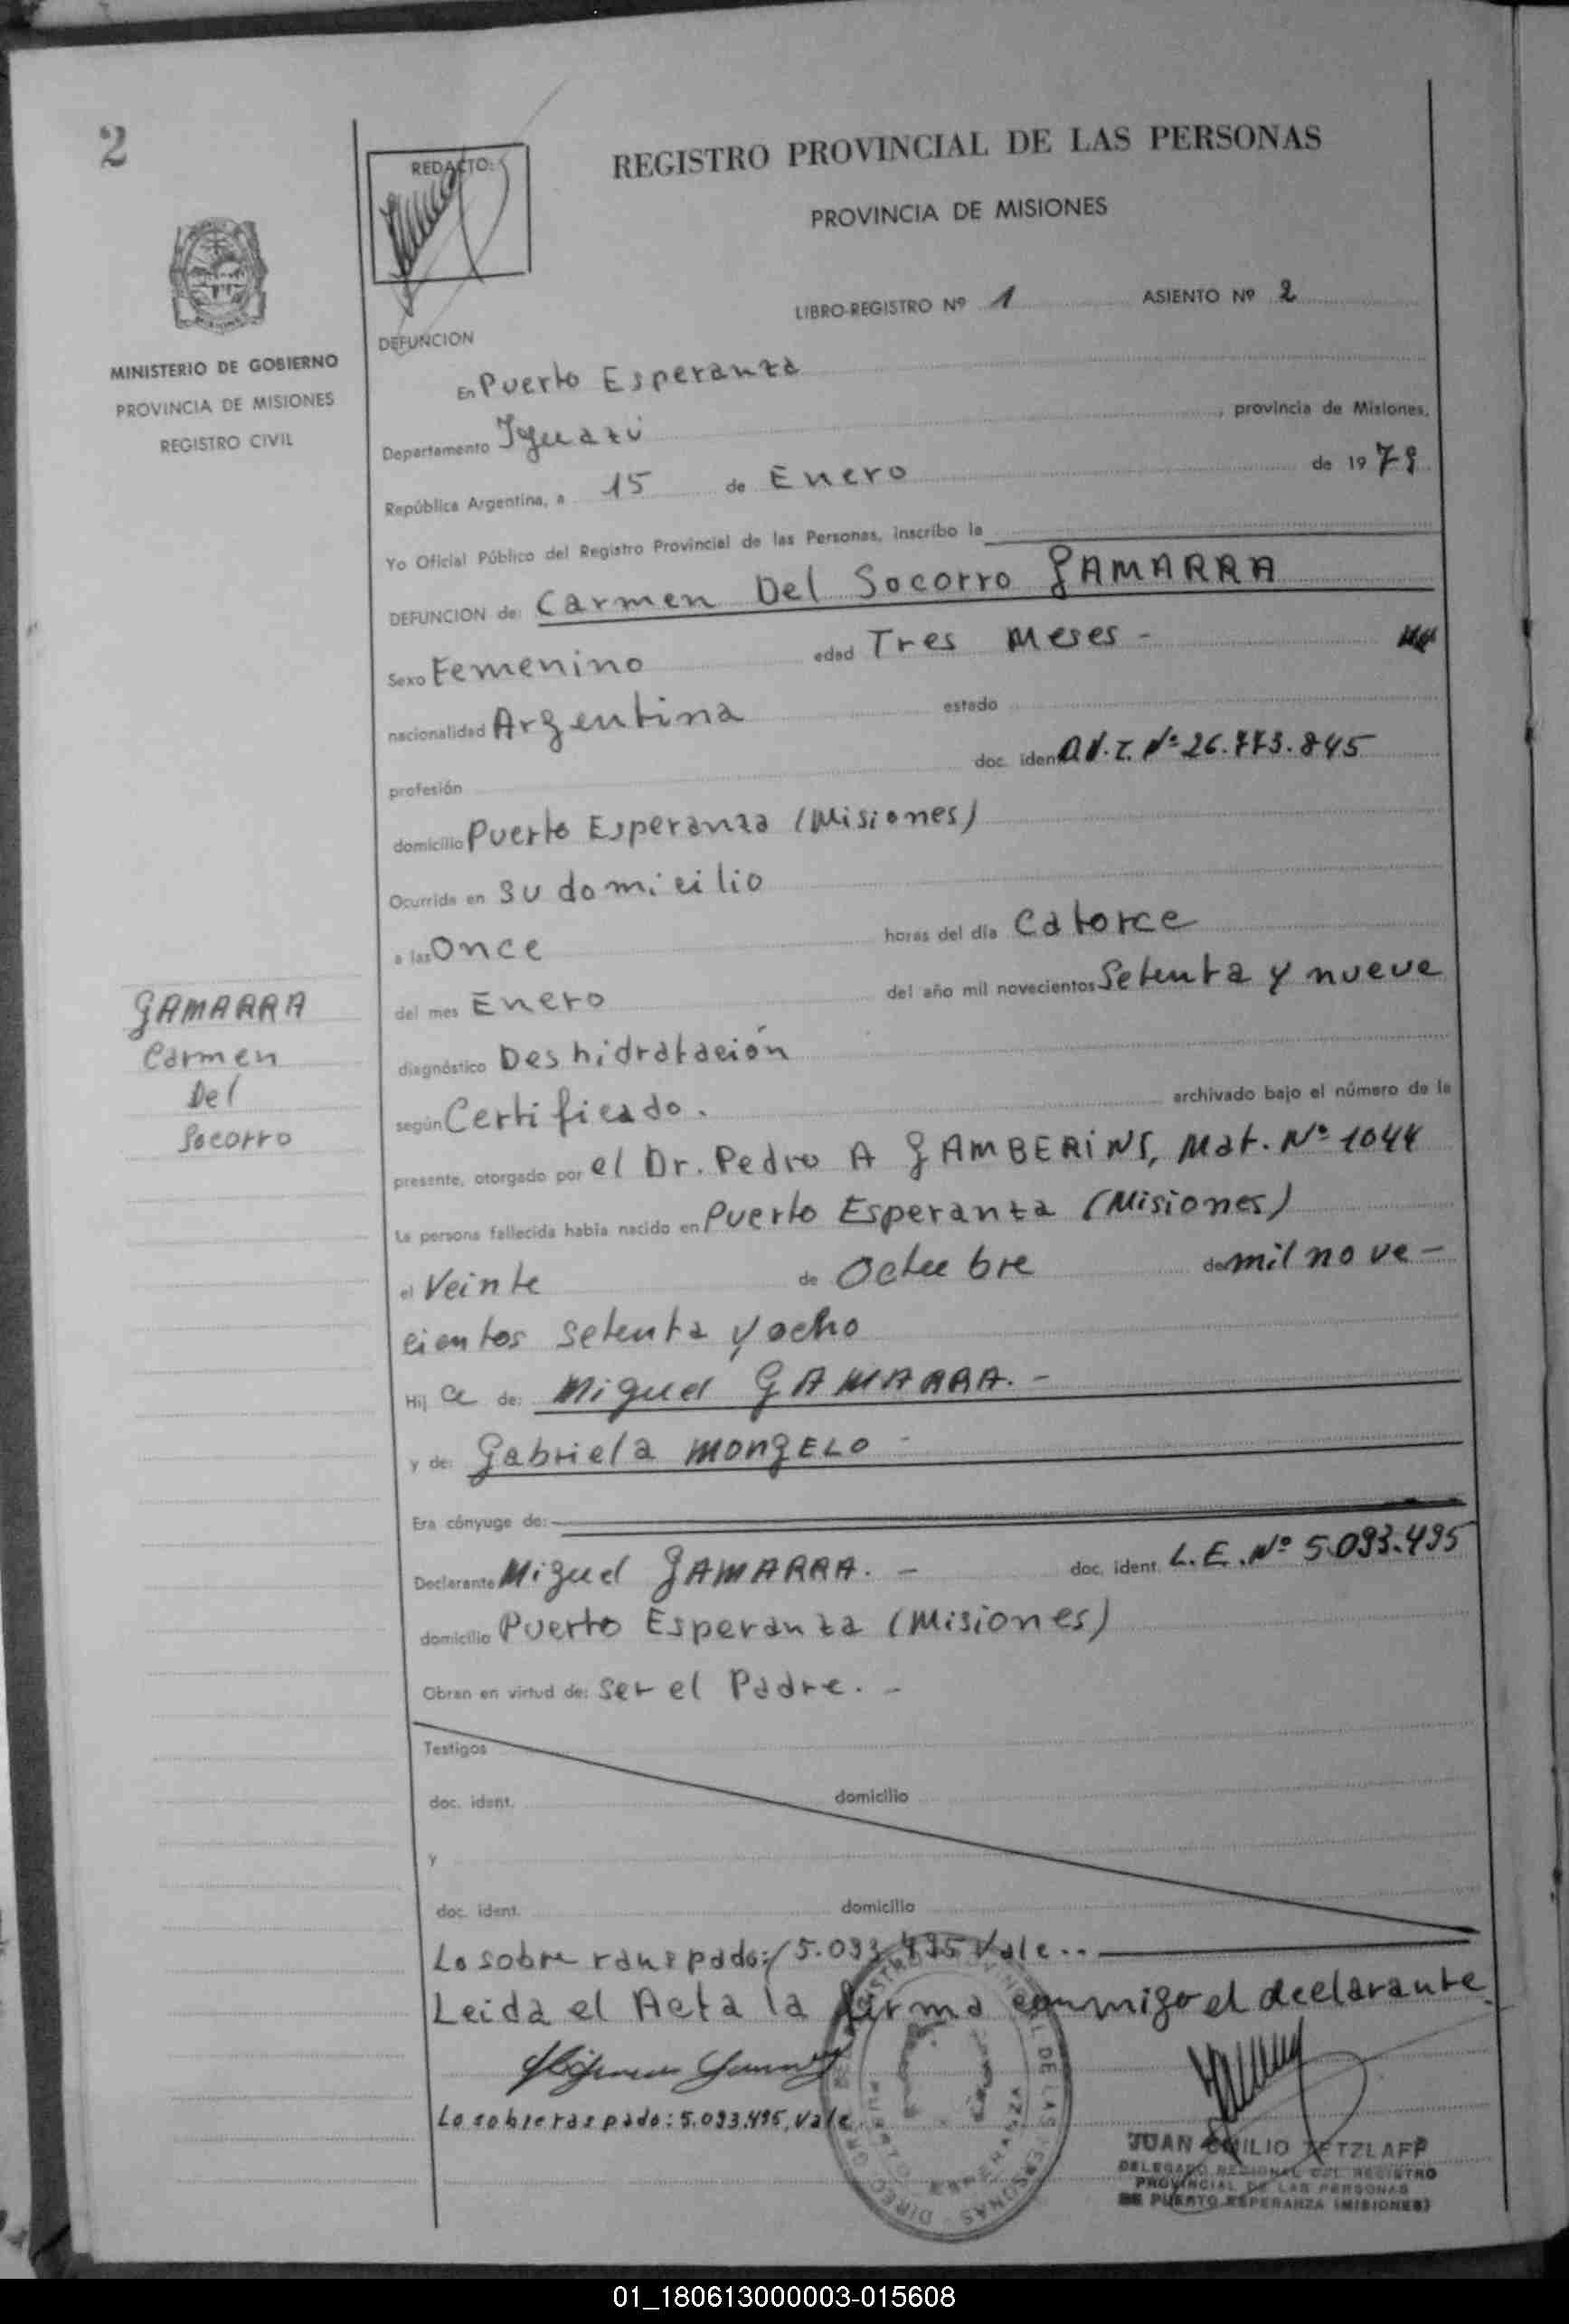 2
REDACTO:
REGISTRO PROVINCIAL DE LAS PERSONAS
PROVINCIA DE MISIONES
MINISTERIO DE GOBIERNO
PROVINCIA DE MISIONES
REGISTRO CIVIL
LIBRO-REGISTRO Nº 1 ASIENTO Nº 2
DEFUNCION
En Puerto Esperanza
Departamento Iguazú, provincia de Misiones,
República Argentina, a 15 de Enero de 1979
Yo Oficial Público del Registro Provincial de las Personas, inscribo la
DEFUNCION de: Carmen Del Socorro GAMARRA
Sexo Femenino edad Tres Meses -
nacionalidad Argentina estado
profesión doc. iden Nº 26.773.845
domicilio Puerto Esperanza (Misiones)
Ocurrida en su domicilio
a las Once horas del día Catorce
del mes Enero del año mil novecientos Setenta y nueve
diagnóstico Deshidratación
según Certificado. archivado bajo el número de la
presente, otorgado por el Dr. Pedro A GAMBERINI, Mat. Nº 1044
La persona fallecida había nacido en Puerto Esperanza (Misiones)
el Veinte de Octubre de mil nove-
cientos setenta y ocho
Hij a de: Miguel GAMARRA. -
y de: Gabriela MONGELO -
Era cónyuge de:
Declarante Miguel GAMARRA. - doc. ident. L.E. Nº 5.093.495
domicilio Puerto Esperanza (Misiones)
Obran en virtud de: ser el Padre. -
Testigos
doc. ident. domicilio
y
doc. ident. domicilio
Lo sobre raspado: 5.093.495 Vale..
Leida el Acta la firma conmigo el declarante
Lo sobre raspado: 5.093.495, Vale
GAMARRA
Carmen
Del
Socorro
DIREC. GRAL. DEL REGISTRO PROVINCIAL DE LAS PERSONAS
PUERTO ESPERANZA
JUAN EMILIO TETZLAFF
DELEGADO REGIONAL DEL REGISTRO
PROVINCIAL DE LAS PERSONAS
DE PUERTO ESPERANZA (MISIONES)
01_180613000003-015608